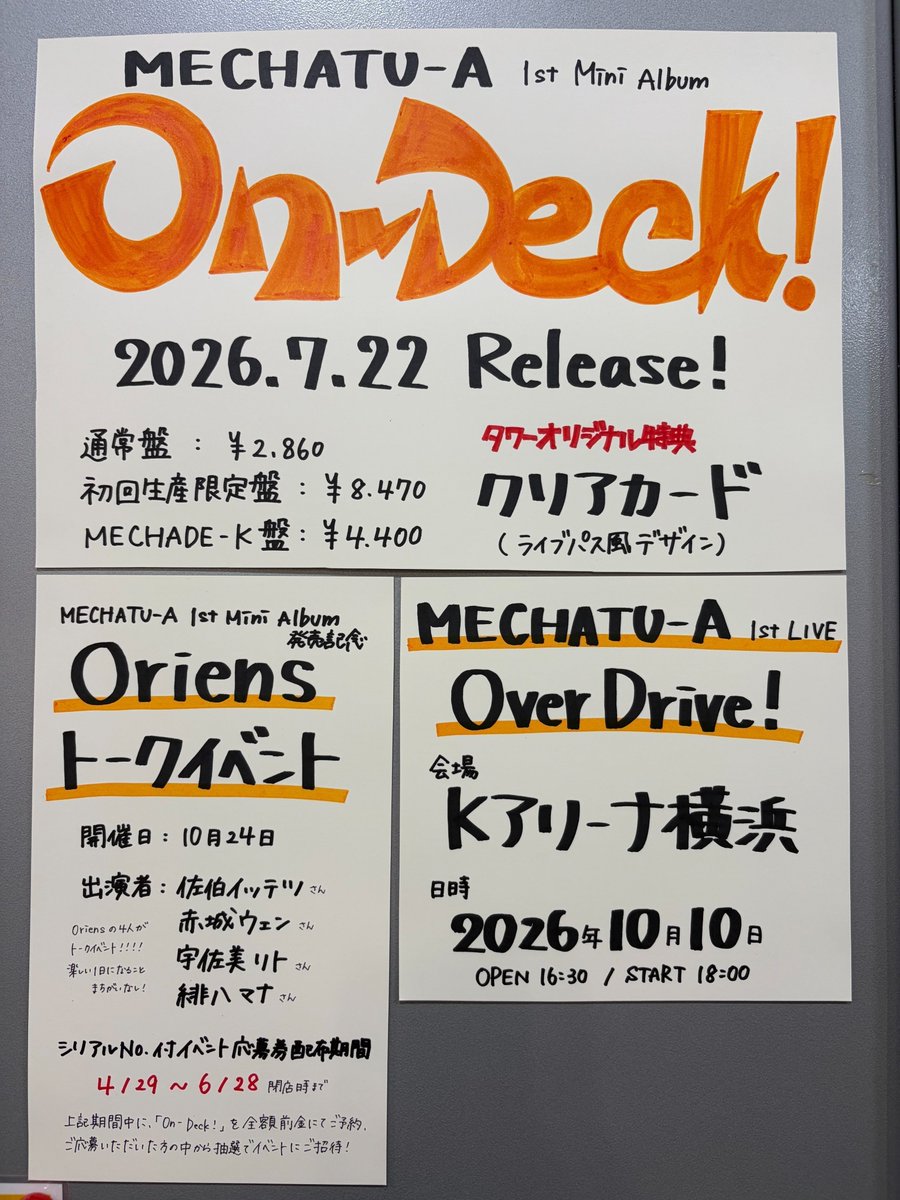 MECHATU-A 1st Mini Album
On-Deck!
2026.7.22 Release!
通常盤 : ¥2.860
初回生産限定盤 : ¥8.470
MECHADE-K盤 : ¥4.400
タワーオリジナル特典
クリアカード
(ライブパス風デザイン)
MECHATU-A 1st Mini Album
発売記念
Oriens
トークイベント
開催日 : 10月24日
出演者 : 佐伯イッテツ さん
赤城ウェン さん
宇佐美リト さん
緋八マナ さん
Oriensの4人が
トークイベント!!!!
楽しい1日になること
まちがいなし!
シリアルNo.付イベント応募券配布期間
4/29 ~ 6/28 閉店時まで
上記期間中に、「On-Deck!」を全額前金にてご予約、
ご応募いただいた方の中から抽選でイベントにご招待!
MECHATU-A 1st LIVE
Over Drive!
会場
Kアリーナ横浜
日時
2026年10月10日
OPEN 16:30 / START 18:00